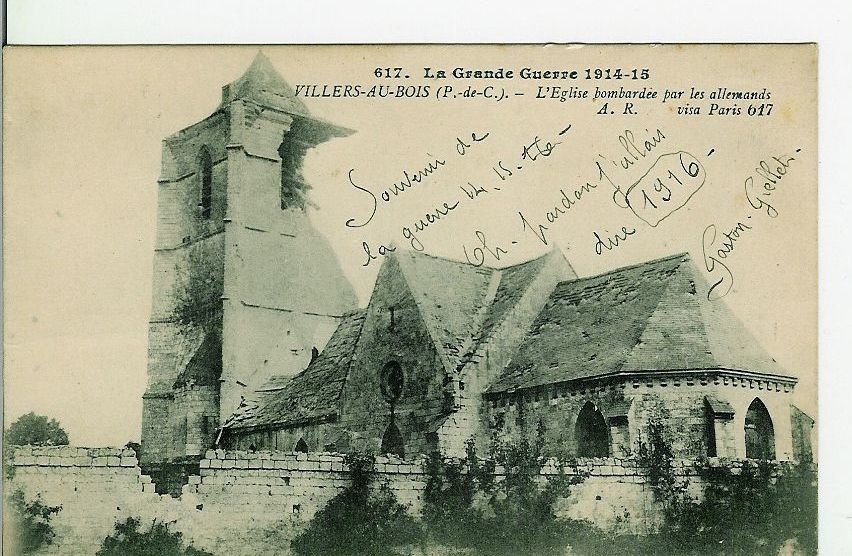 617. La Grande Guerre 1914-15
VILLERS-AU-BOIS (P.-de-C.). – L'Eglise bombardée par les allemands
A. R. visa Paris 617
Souvenir de
la guerre 14.15.16
Oh. pardon j'allais
dire 1916
Gaston. Giellet.